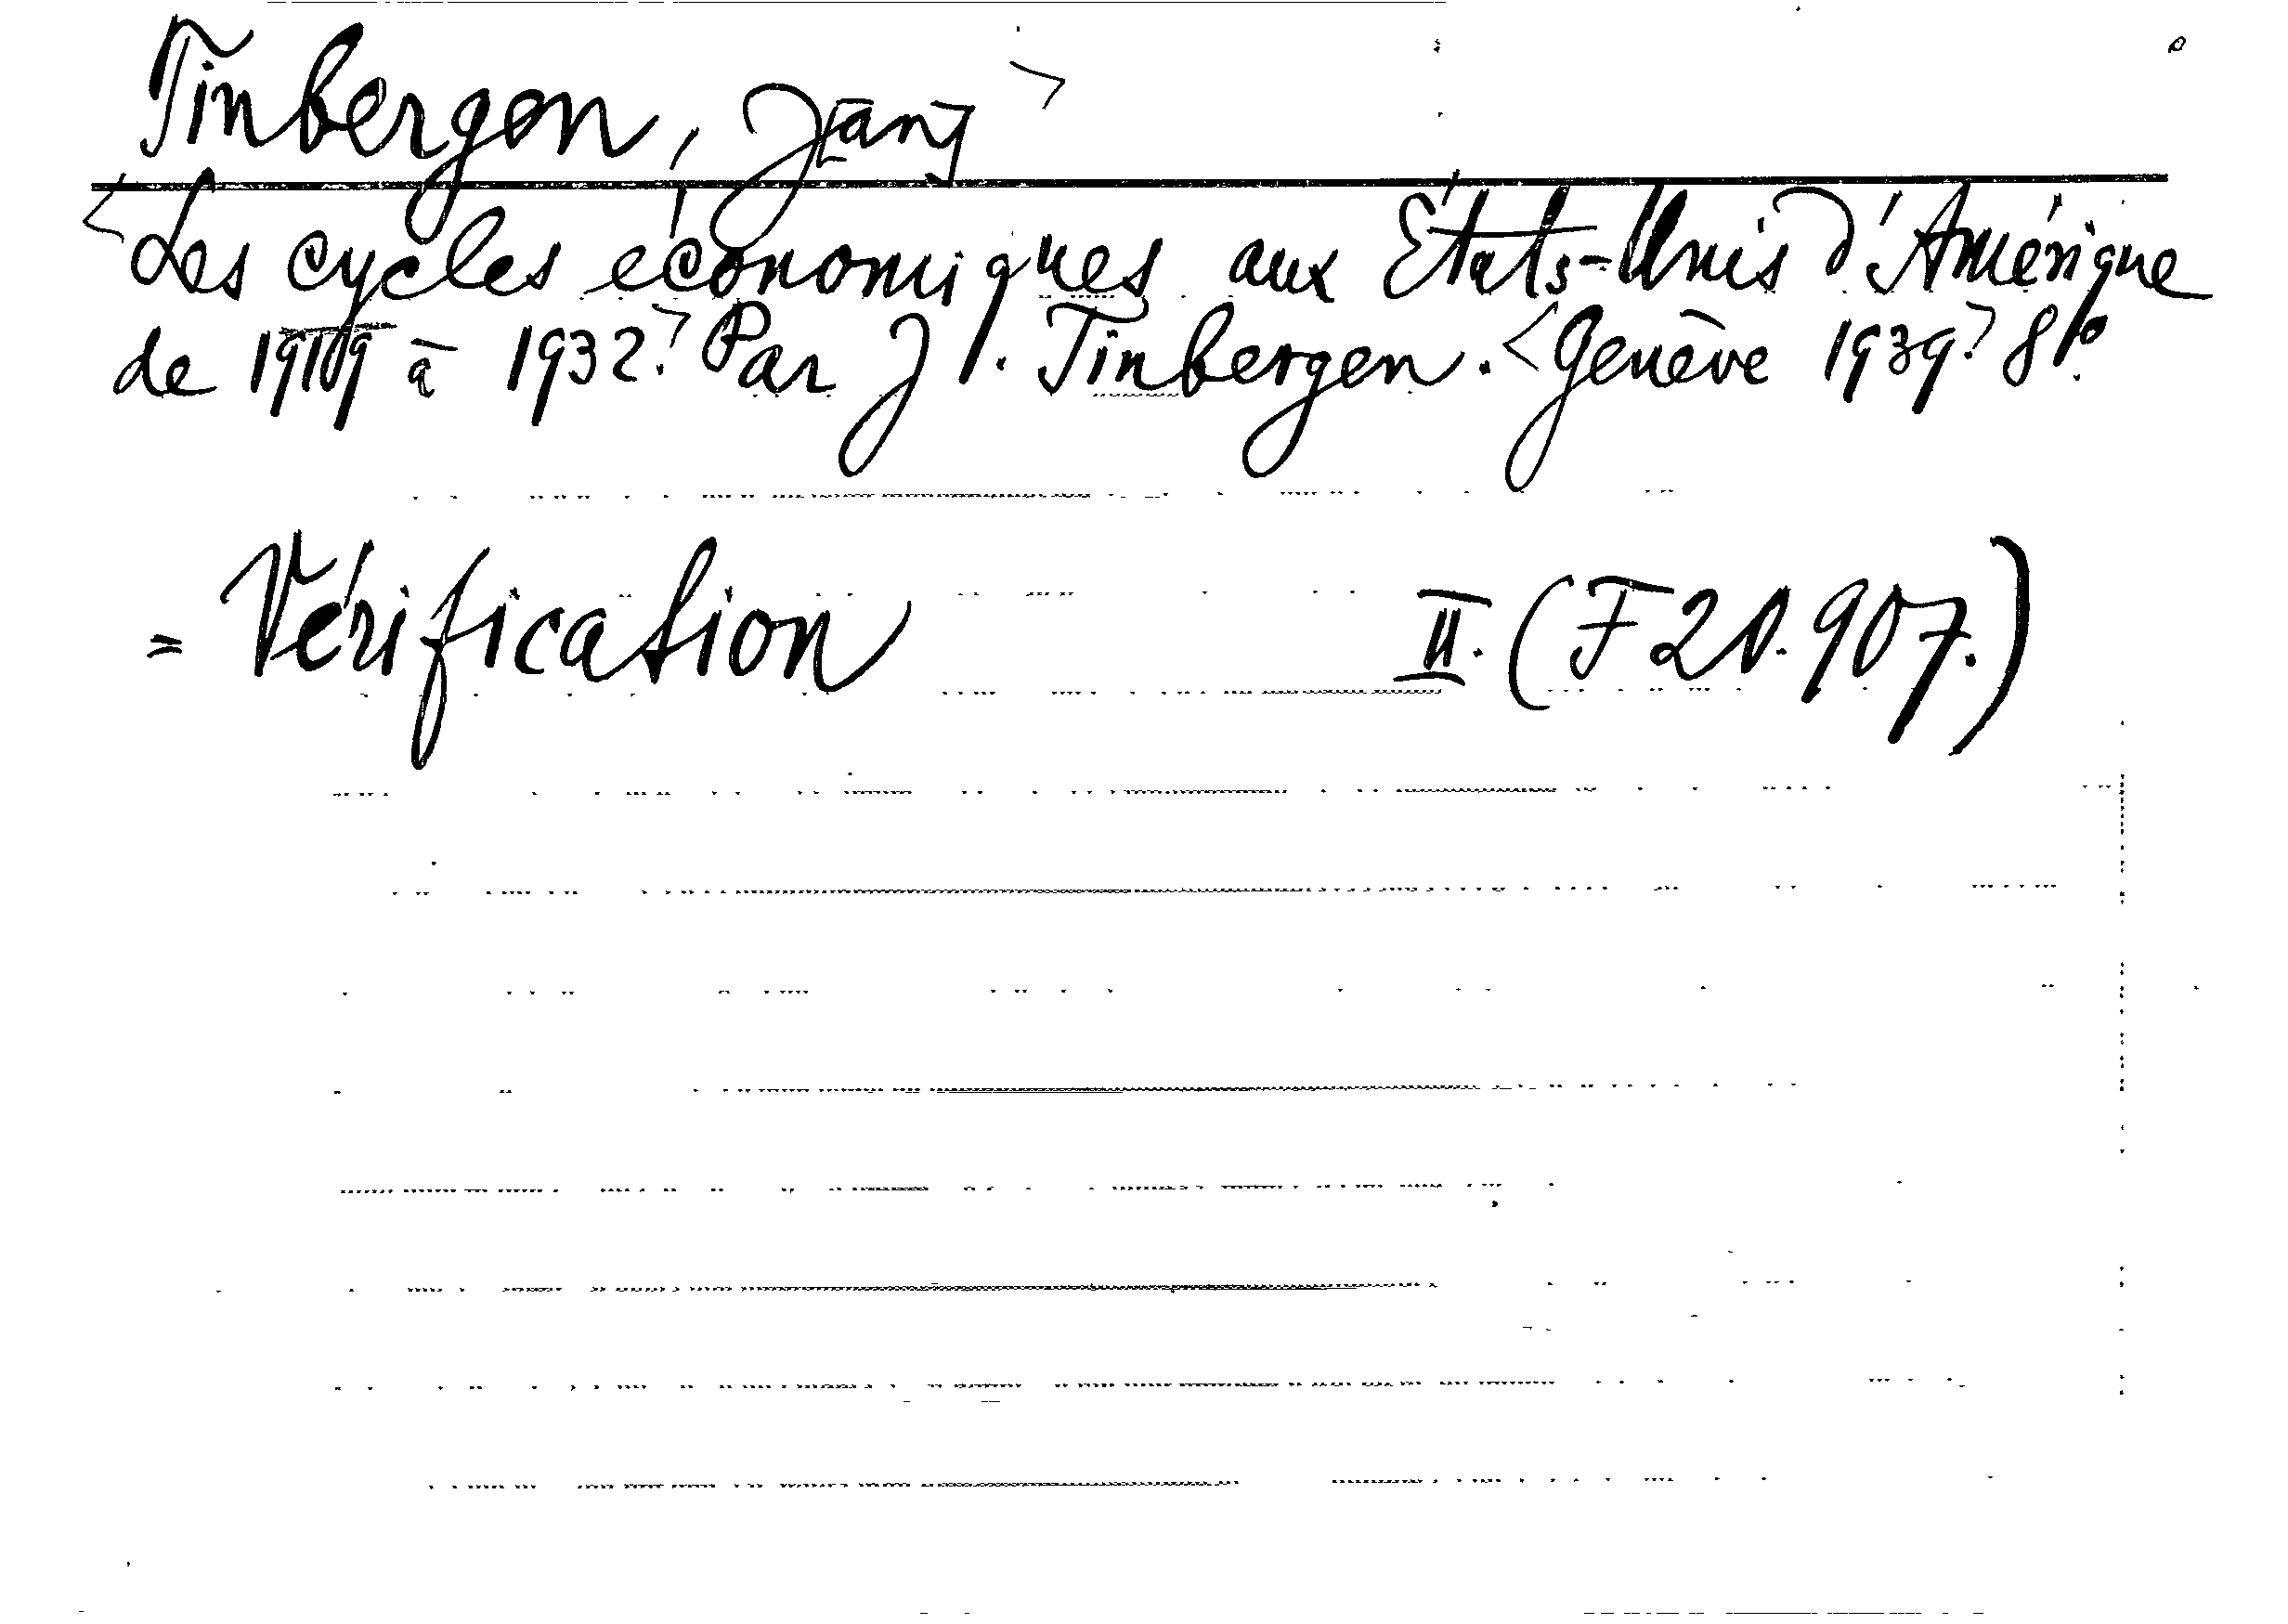 Tinbergen, J[an]
Les cycles économiques aux États-Unis d'Amérique
de 1919 à 1932. Par J. Tinbergen. Genève 1939. 8°.
= Vérification II. (F 20.907.)